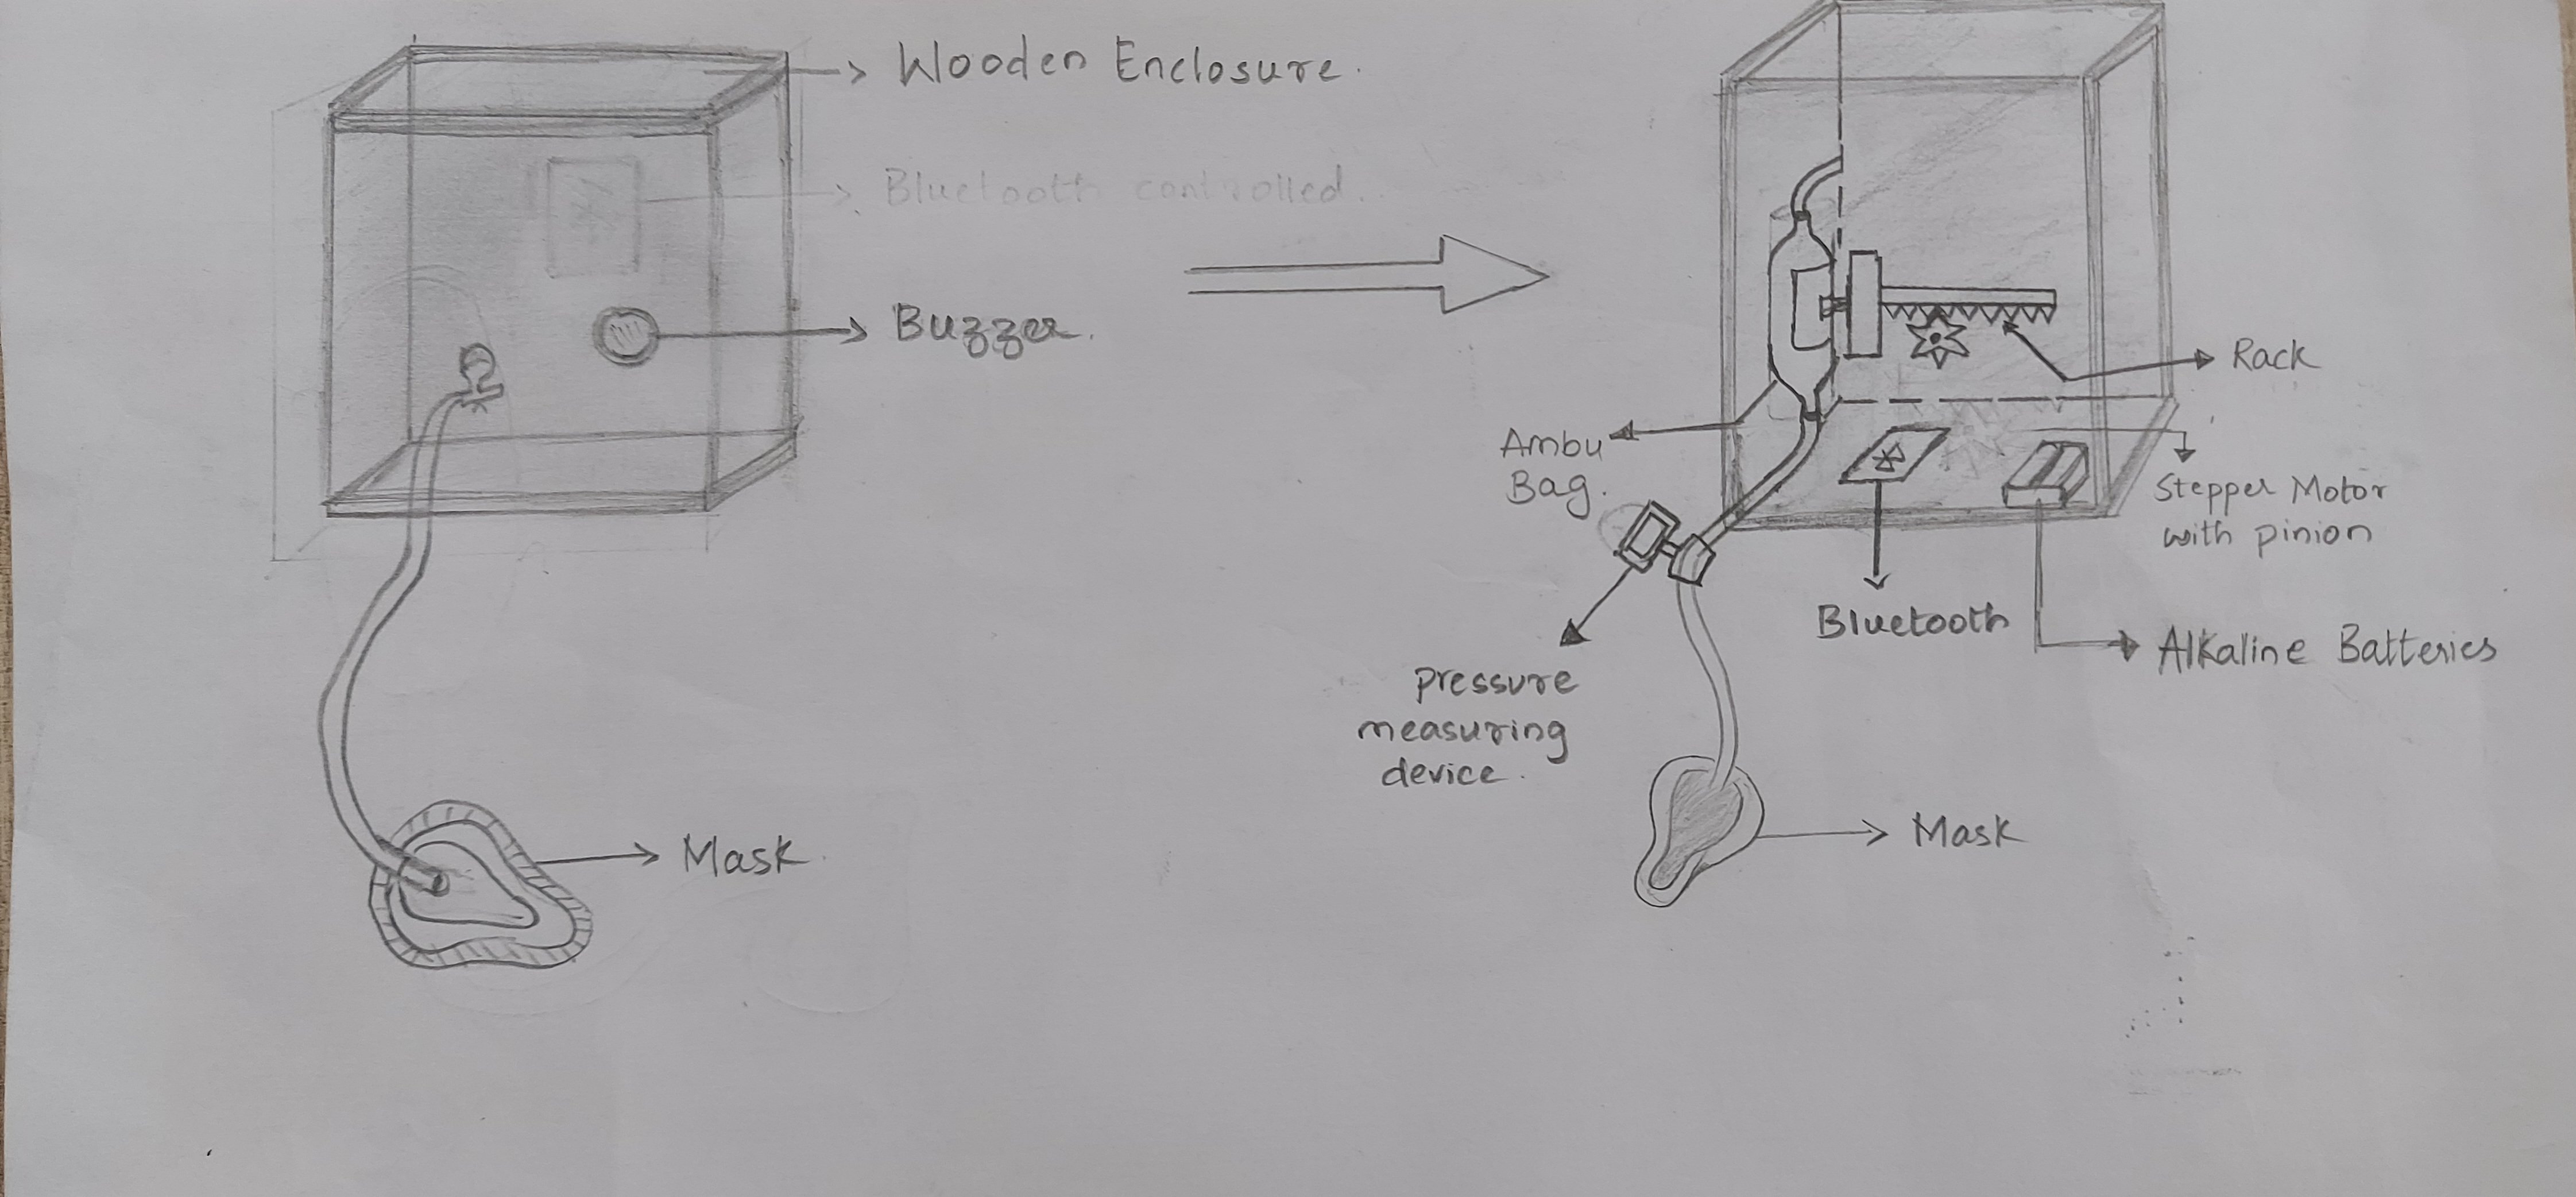 Wooden Enclosure.
Bluetooth controlled.
Buzzer.
Mask.
Rack
Ambu
Bag.
Stepper Motor
with pinion
Bluetooth
Alkaline Batteries
pressure
measuring
device.
Mask